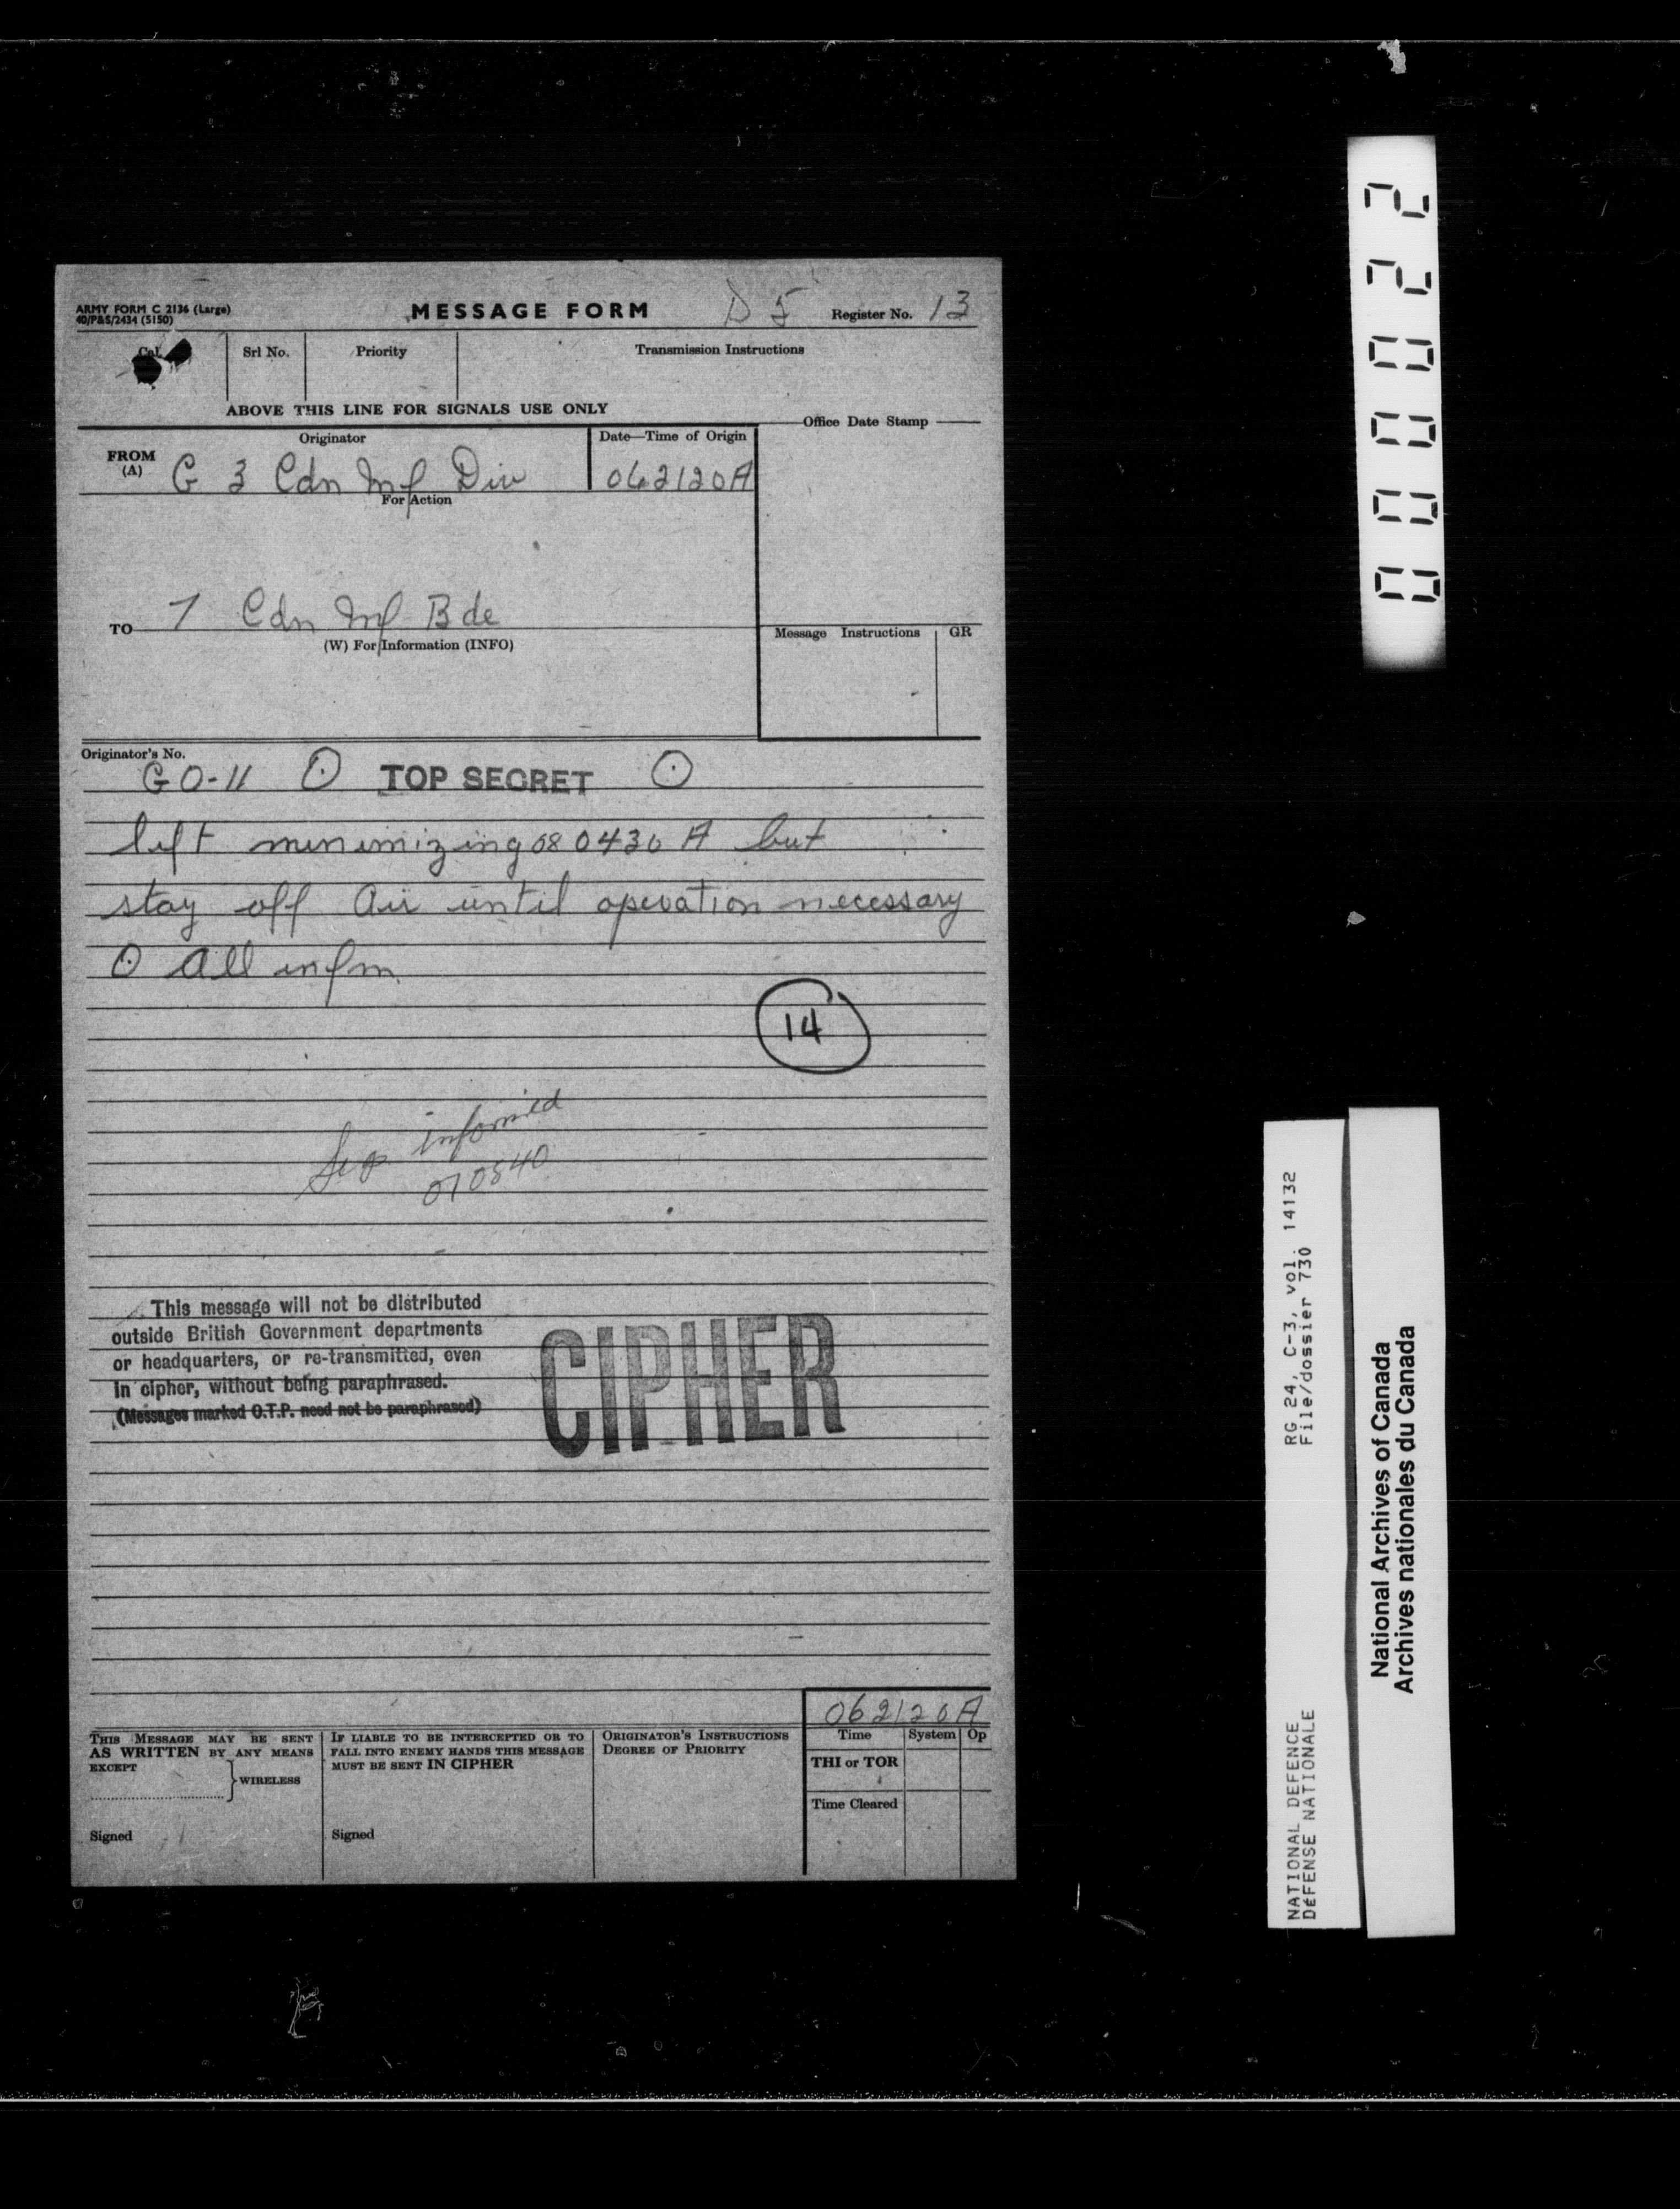 ARMY FORM C 2136 (Large)
40/P&S/2434 (5150)
MESSAGE FORM
Register No. 13
Srl No.
Priority
Transmission Instructions
ABOVE THIS LINE FOR SIGNALS USE ONLY
Office Date Stamp
Originator
Date—Time of Origin
FROM
(A)
G 3 Cdn Inf Div
062120A
For Action
TO 7 Cdn Inf Bde
(W) For Information (INFO)
Message Instructions
GR
Originator's No.
GO-11 ⊙ TOP SECRET ⊙
lift minimizing 080430 A but
stay off air until operation necessary
⊙ all infm
14
informed
070840
This message will not be distributed
outside British Government departments
or headquarters, or re-transmitted, even
in cipher, without being paraphrased.
(Messages marked O.T.P. need not be paraphrased)
CIPHER
062120A
THIS MESSAGE MAY BE SENT
AS WRITTEN BY ANY MEANS
EXCEPT
WIRELESS
Signed
IF LIABLE TO BE INTERCEPTED OR TO
FALL INTO ENEMY HANDS THIS MESSAGE
MUST BE SENT IN CIPHER
Signed
ORIGINATOR'S INSTRUCTIONS
DEGREE OF PRIORITY
Time
System
Op
THI or TOR
Time Cleared
000022
RG 24, C-3, vol. 14132
File/dossier 730
NATIONAL DEFENCE
DéFENSE NATIONALE
National Archives of Canada
Archives nationales du Canada